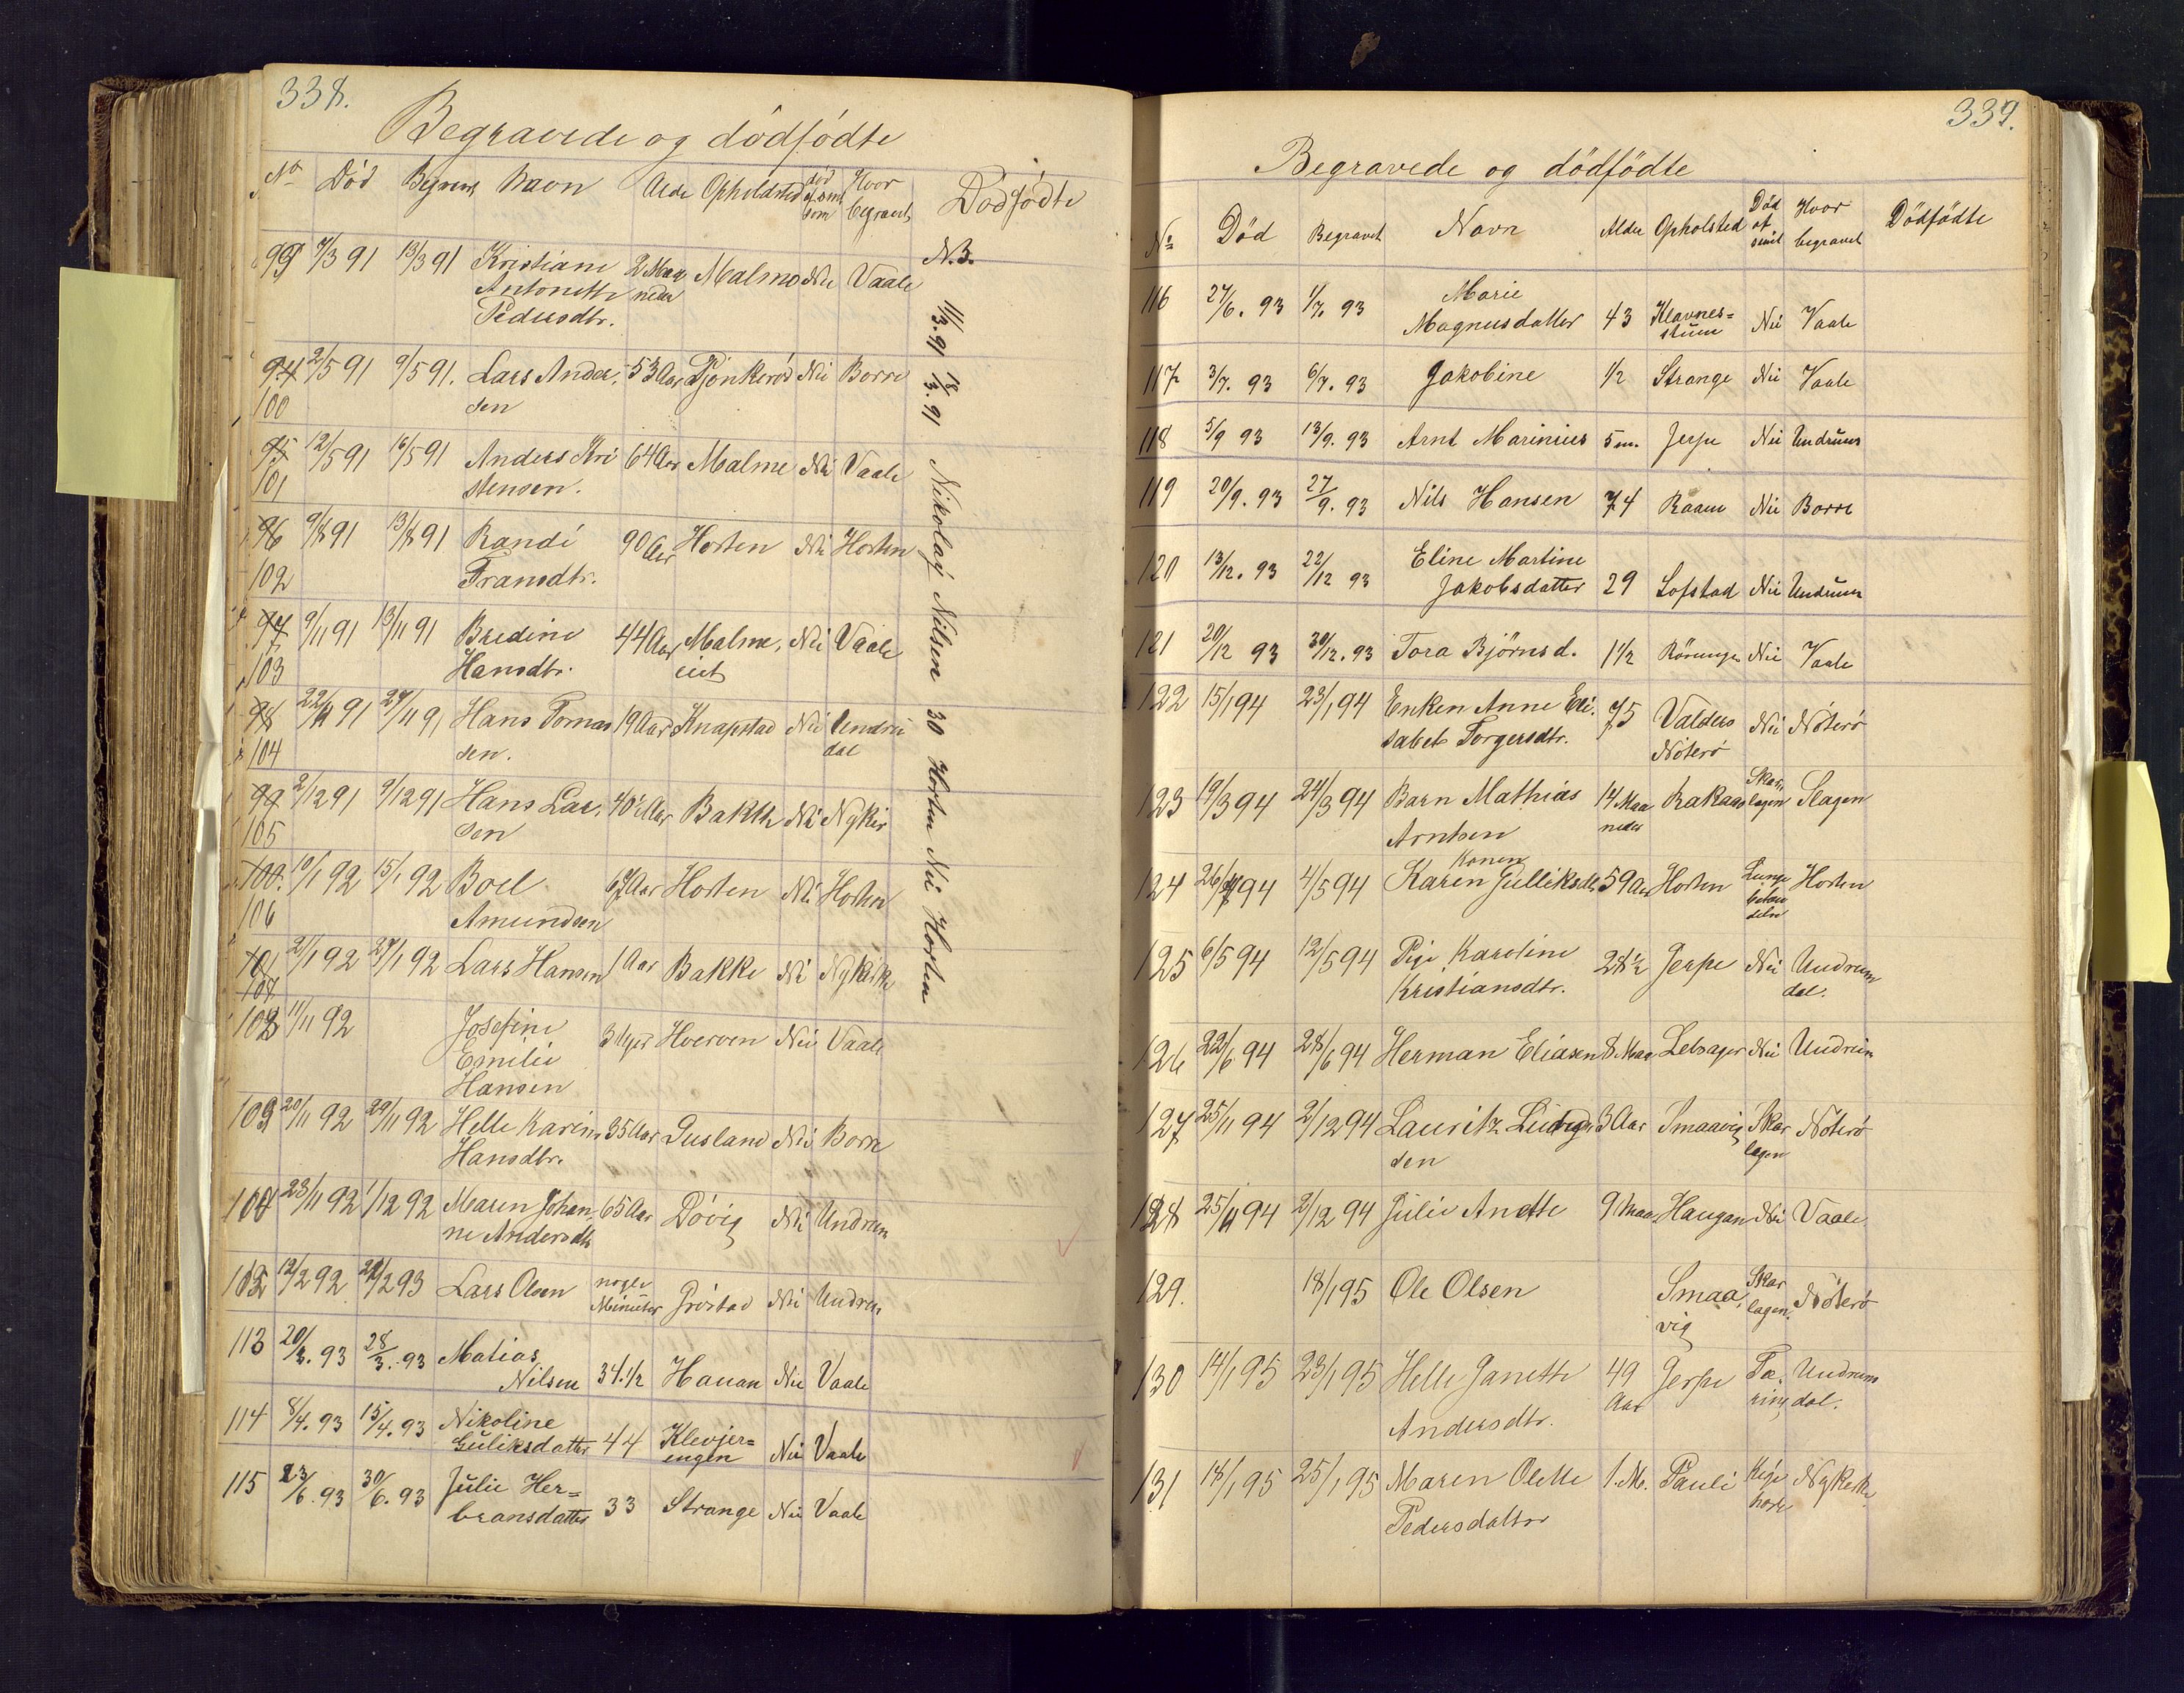 338.
Begravede og dödfödte
No Död Begravet Navn Alder Opholdsted død af smit som Hvor begravet Dödfödte
99 7/3 91 13/3 91 Kristiane 2 Maa Malmo Nei Vaale N.3.
Antonette neder
Pedersdtr.
94 2/5 91 9/5 91. Lars Ander, 53 Aar Nei Borre
100 sen
95 12/5 91 16/5 91 Anders Kri 64 Aar Malme Nei Vaale
101 stensen.
96 9/8 91 13/8 91 Randi 90 Aar Horten Nei Horten
102 Fransdtr.
97 9/11 91 13/11 91 Bredine 44 Aar Malme, Nei Vaale
103 Hansdtr. eiet
98 22/11 91 27/11 91 Hans Tomas 19 Aar Knapstad Nei Undru
104 sen. dal
99 2/12 91 9/12 91 Hans Lar, 40½ Aar Bakke Nei Nykir
105 sen
100. 10/1 92 15/1 92 Boel 67 Aar Horten Nei Horten
106 Amundsen
101 21/1 92 27/1 92 Lars Hansen 1 Aar Bakke Nei Nykirke
107
108 11/11 92 Josefine Nei Vaale
Emilie
Hansen
109 20/11 92 29/11 92 Helle Karine 35 Aar Gusland Nei Borre
Hansdtr.
23/11 92 1/12 92 Maren Johan 65 Aar Dövig Nei Undrum
ne Andersdtr
12/2 92 Lars Olsen nogle Gröstad Nei Undrum
Minuter
113 20/3. 93 28/3. 93 Matias
Nilsen 34.1/2 Hauan Nei Vaale
114 8/4. 93 15/4. 93 Nikoline
Guliksdatter 44 Klevjer=
engen Nei Vaale
115 23/6. 93 30/6. 93 Julie Her=
bransdatter 33 Strange Nei Vaale
11/3. 91 18/3. 91 Nikolaj Nilsen 30 Horten Nei Horten
339.
Begravede og dödfödte
No Död Begravet Navn Alder Opholsted Död af smit Hvor begravet Dödfödte
116 27/6. 93 1/7. 93 Marie
Magnusdatter 43 Klavnes=
stuen Nei Vaale
117 3/7. 93 6/7. 93 Jakobine 1/2 Strange Nei Vaale
118 5/9 93 13/9. 93 Arnt Marinius 5 m. Jerpe Nei Undrum
119 20/9. 93 27/9. 93 Nils Hansen 74 Raaen Nei Borre
120 13/12. 93 22/12 93 Eline Martine
Jakobsdatter 29 Lofstad Nei Undrum
121 20/12 93 30/12. 93 Tora Björnsd. 1 1/2 Rörunge Nei Vaale
122 15/1 94 23/1 94 Enken Anne Eli. 75 Valders Nei Nöterö
sabet Torgersdtr. Nöterö
123 19/3 94 24/3 94 Barn Mathias 14 Maa Rakaas Skar, Slagen
Arntsen neder lagen
Konen
124 26/4 94 4/5 94 Karen Gulliksdtr 59 Aar Horten Lunge Horten
betæn
delse
125 6/5 94 12/5 94 Pige Karoline 28½ Jerpe Nei Undrum
Kristiansdtr. dal.
126 22/6 94 28/6 94 Herman Eliasen 8 Maa Lebsager Nei Undrum
127 25/11 94 2/12 94 Lauritz Ludvig 3 Aar Smaavig Skar Nöterö
sen lagen
128 25/11 94 2/12 94 Julie Anette 9 Maa Haugan Nei Vaale.
129. 18/1 95 Ole Olsen Smaa, Skar Nöterö
vig lagen.
130 14/1 95 23/1 95 Helle Janette 49 Jerpe Tæ, Undrum
Andersdtr. Aar ring dal.
131 18/1 95 25/1 95 Maren Olette 1. M. Pauli Kig Nykirke
Pedersdatter hoste